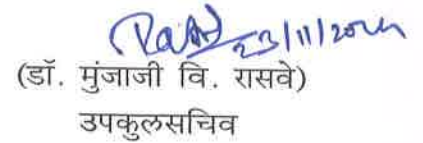 23/11/20
(डॉ. मुंजाजी वि. रासवे)
उपकुलसचिव